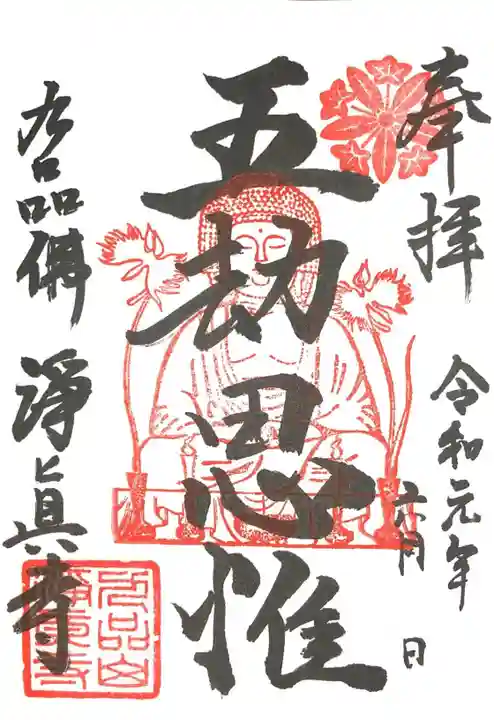 奉拝
令和元年
六月 日
五劫思惟
九品佛
淨眞寺
九品山
淨眞寺